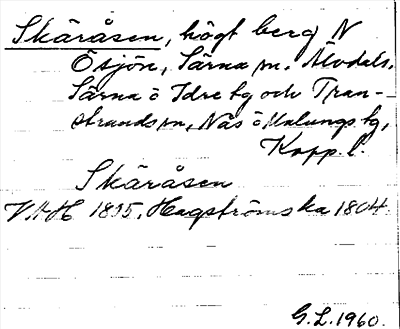 Skäråsen, högt berg N
Ösjön, Särna sn. Älvdals,
Särna o Idre tg och Tran-
strands sn, Nås o Malungs tg,
Kopp. l.
Skäråsen
1895. Hagströmska 1804
G.L. 1960.